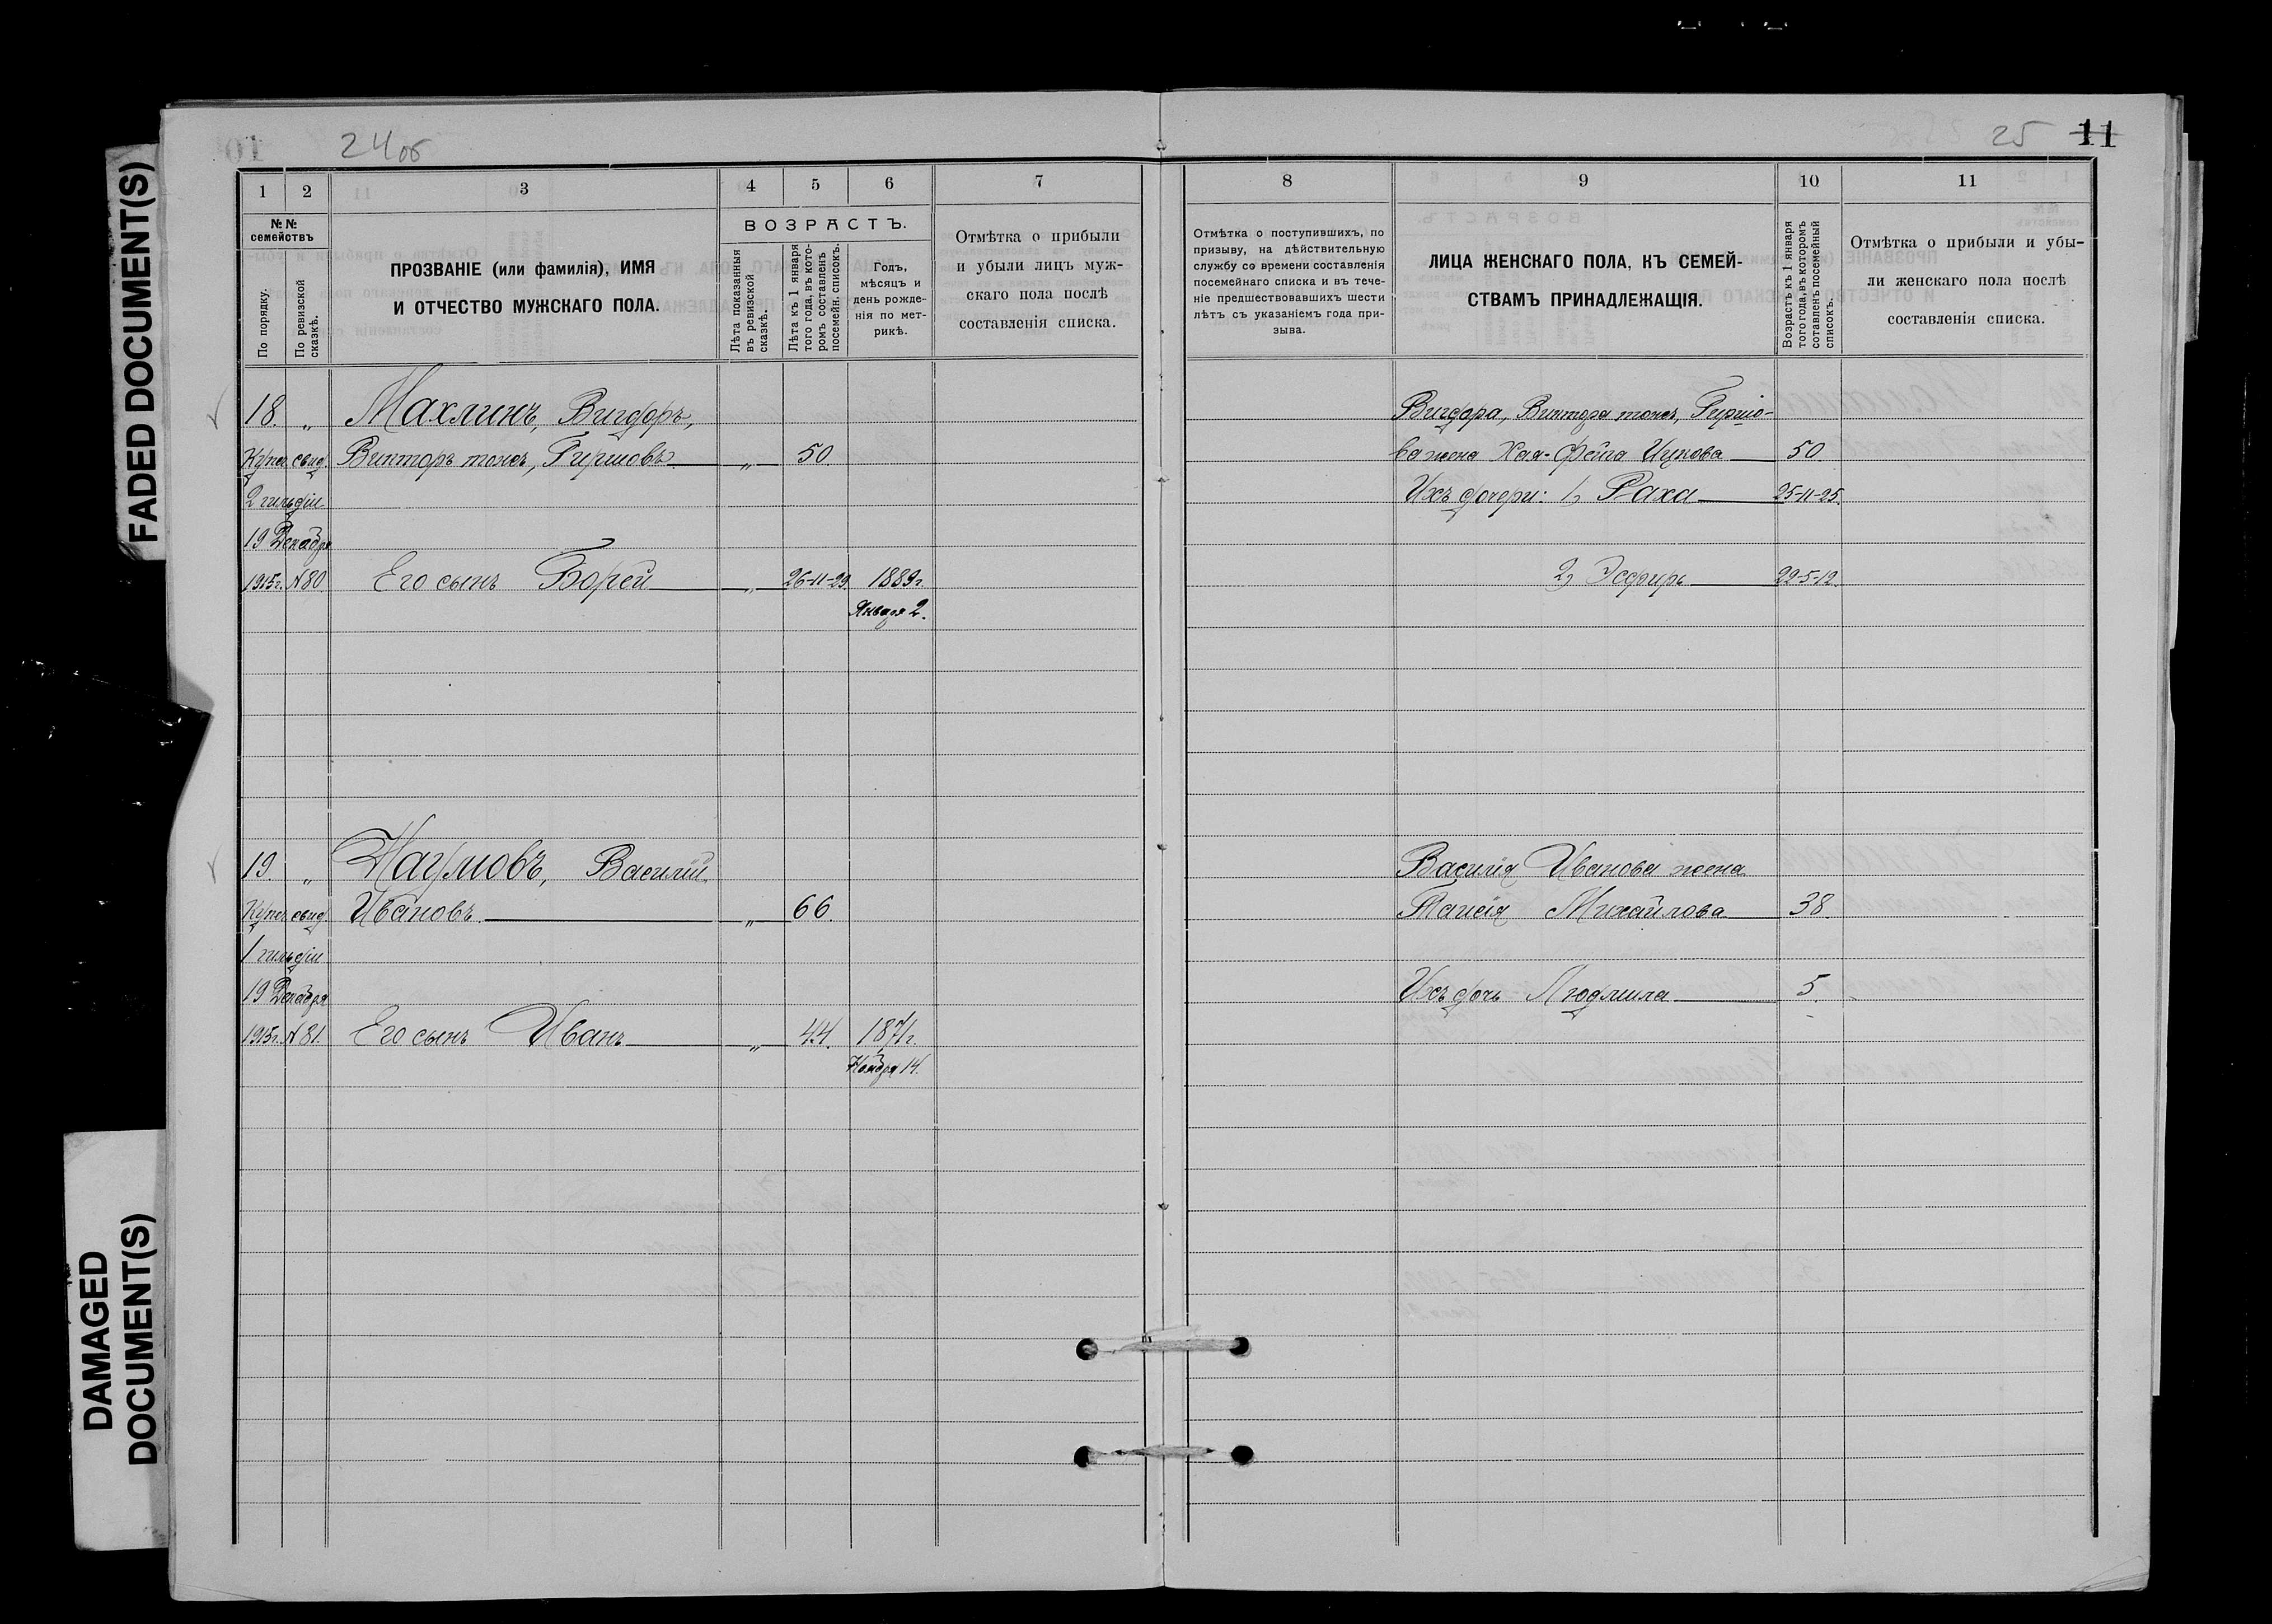 FADED DOCUMENT(S)
DAMAGED
DOCUMENT(S)
24об
25 11
1 2 3 4 5 6 7
№№
семействъ
По порядку.
По ревизской сказкѣ.
ПРОЗВАНІЕ (или фамилія), ИМЯ
И ОТЧЕСТВО МУЖСКАГО ПОЛА.
ВОЗРАСТЪ.
Лѣта показанныя
въ ревизской
сказкѣ.
Лѣта къ 1 января
того года, въ кото-
ромъ составленъ
посемейн. списокъ.
Годъ,
мѣсяцъ и
день рожде-
нія по мет-
рикѣ.
Отмѣтка о прибыли
и убыли лицъ муж-
скаго пола послѣ
составленія списка.
18. „ Махлинъ, Вигдоръ,
Купеч. свид. Викторъ тожъ, Гиршовъ „ 50
2 гильдіи
19 Декабря
1915г. №80 Его сынъ Борей „ 26-11-29 1889г.
Января 2.
19. „ Наумовъ, Василій
Купеч. свид. Ивановъ „ 66.
1 гильдіи
19 Декабря
1915г. №81. Его сынъ Иванъ „ 44. 1871г.
Ноября 14.
8 9 10 11
Отмѣтка о поступившихъ, по
призыву, на дѣйствительную
службу со времени составленія
посемейнаго списка и въ тече-
ніе предшествовавшихъ шести
лѣтъ съ указаніемъ года при-
зыва.
ЛИЦА ЖЕНСКАГО ПОЛА, КЪ СЕМЕЙ-
СТВАМЪ ПРИНАДЛЕЖАЩІЯ.
Возрастъ къ 1 января
того года, въ которомъ
составленъ посемейный
списокъ.
Отмѣтка о прибыли и убы-
ли женскаго пола послѣ
составленія списка.
Вигдора, Виктора тожъ, Гиршо-
ва жена Хая-Фейга Ицкова 50
Ихъ дочери: 1, Раха 25-11-25.
2, Эсфирь 22-5-12.
Василія Иванова жена
Таисія Михайлова 38.
Ихъ дочь Людмила 5.